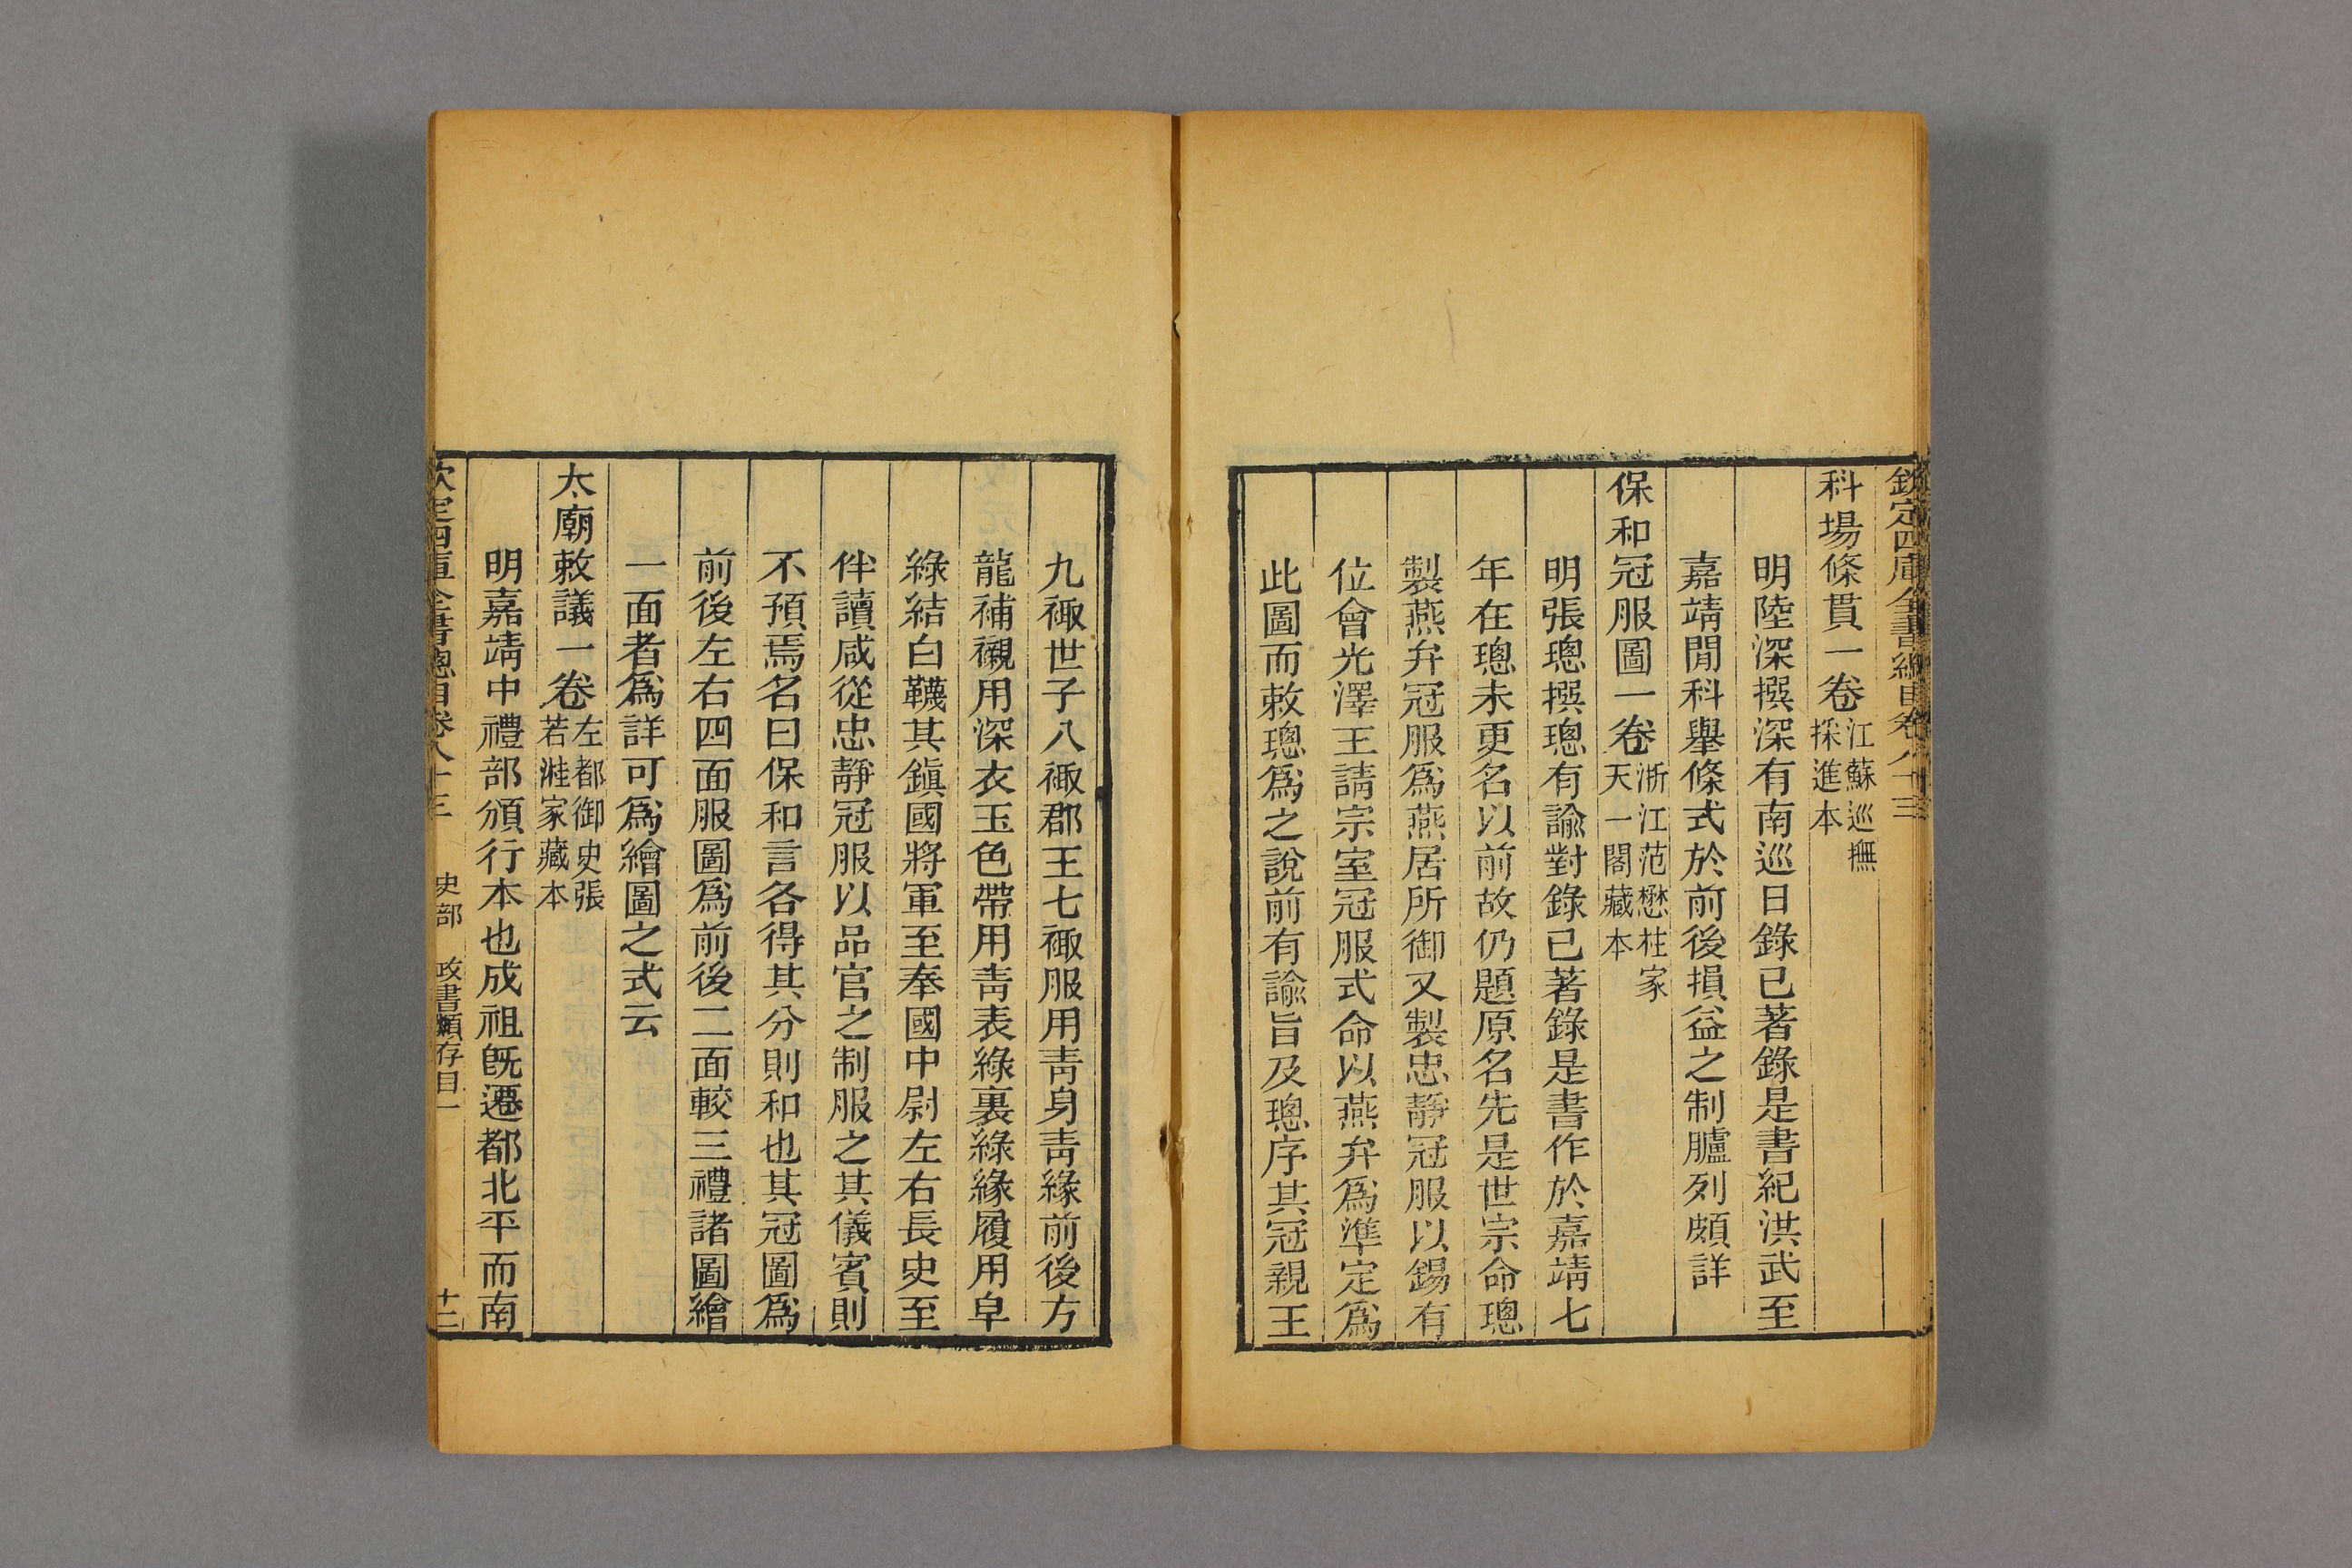 欽定四庫全書總目卷八十三
科場條貫一卷江蘇巡撫採進本
明陸深撰深有南巡日錄已著錄是書紀洪武至
嘉靖閒科舉條式於前後損益之制臚列頗詳
保和冠服圖一卷浙江范懋柱家天一閣藏本
明張璁撰璁有諭對錄已著錄是書作於嘉靖七
年在璁未更名以前故仍題原名先是世宗命璁
製燕弁冠服爲燕居所御又製忠靜冠服以錫有
位會光澤王請宗室冠服式命以燕弁爲準定爲
此圖而敕璁爲之說前有諭旨及璁序其冠親王
九𧙕世子八𧙕郡王七𧙕服用靑身靑緣前後方
龍補襯用深衣玉色帶用靑表綠裏綠緣履用皁
綠結白韈其鎭國將軍至奉國中尉左右長史至
伴讀咸從忠靜冠服以品官之制服之其儀賓則
不預焉名曰保和言各得其分則和也其冠圖爲
前後左右四面服圖爲前後二面較三禮諸圖繪
一面者爲詳可爲繪圖之式云
太廟敕議一卷左都御史張若溎家藏本
明嘉靖中禮部頒行本也成祖旣遷都北平而南
欽定四庫全書總目卷八十三 史部 政書類存目一 十二